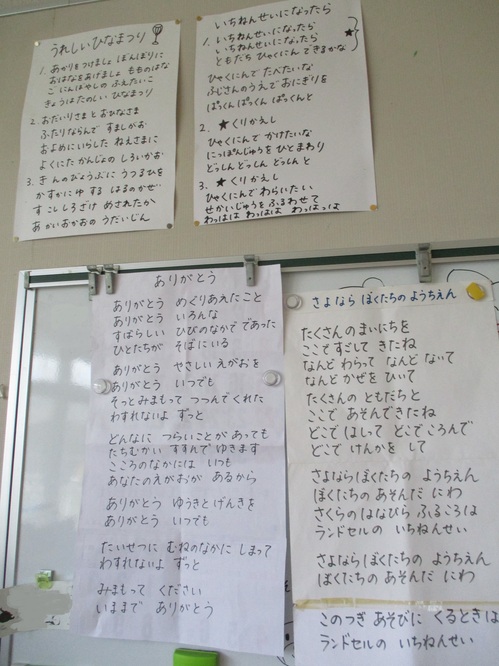 うれしいひなまつり
1. あかりをつけましょ ぼんぼりに
おはなをあげましょ もものはな
ごにんばやしの ふえたいこ
きょうはたのしい ひなまつり
2. おだいりさまと おひなさま
ふたりならんで すましがお
およめにいらした ねえさまに
よくにた かんじょの しろいかお
3. きんのびょうぶに うつるひを
かすかにゆする はるのかぜ
すこししろざけ めされたか
あかいおかおの うだいじん
いちねんせいになったら
1. いちねんせいに なったら
いちねんせいに なったら
ともだち ひゃくにん できるかな
★
ひゃくにんで たべたいな
ふじさんのうえで おにぎりを
ぱっくん ぱっくん ぱっくんと
2. ★くりかえし
ひゃくにんで かけたいな
にっぽんじゅうを ひとまわり
どっしん どっしん どっしんと
3. ★くりかえし
ひゃくにんで わらいたい
せかいじゅうを ふるわせて
わっはは わっはは わっはっは
ありがとう
ありがとう めぐりあえたこと
ありがとう いろんな
すばらしい ひびのなかで であった
ひとたちが そばにいる
ありがとう やさしい えがおを
ありがとう いつでも
そっとみまもって つつんでくれた
わすれないよ ずっと
どんなに つらいことが あっても
たちむかい すすんで ゆきます
こころのなかには いつも
あなたのえがおが あるから
ありがとう ゆうきとげんきを
ありがとう いつでも
たいせつに むねのなかに しまって
わすれないよ ずっと
みまもって ください
いままで ありがとう
さよなら ぼくたちの ようちえん
たくさんの まいにちを
ここで すごして きたね
なんど わらって なんど ないて
なんど かぜを ひいて
たくさんの ともだちと
ここで あそんできたね
どこで はしって どこで ころんで
どこで けんかを して
さよなら ぼくたちの ようちえん
ぼくたちの あそんだ にわ
さくらの はなびら ふるころは
ランドセルの いちねんせい
さよなら ぼくたちの ようちえん
ぼくたちの あそんだ にわ
このつぎ あそびに くるときは
ランドセルの いちねんせい